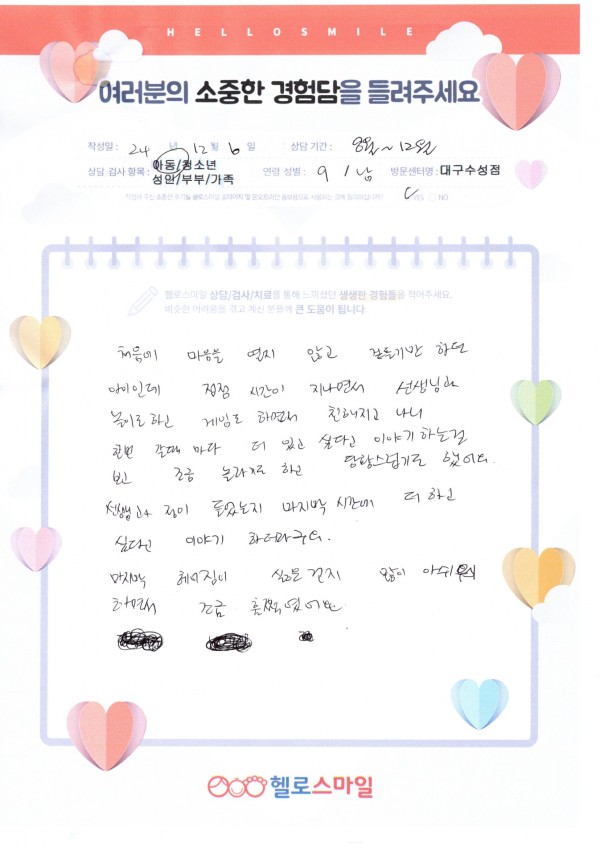 HELLOSMILE
여러분의 소중한 경험담을 들려주세요
작성일 : 24 년 12 월 6 일 상담 기간 : 8월~12월
상담 검사 항목 : 아동/청소년 성인/부부/가족 연령 성별 : 9 / 남 방문센터명 : 대구수성점
작성해 주신 소중한 후기를 헬로스마일 소식지 및 온오프라인 홍보용으로 사용하는 것에 동의하십니까? YES NO
헬로스마일 상담/검사/치료를 통해 느끼셨던 생생한 경험들을 적어주세요.
비슷한 어려움을 겪고 계신 분들께 큰 도움이 됩니다.
처음에 마음을 열지 않고 겉돌기만 하던
아이인데 점점 시간이 지나면서 선생님과
놀이도 하고 게임도 하면서 친해지고 나니
한번 갈때 마다 더 있고 싶다고 이야기 하는걸
보고 조금 놀라기도 하고 당황스럽기도 했어요.
선생님과 정이 들었는지 마지막 시간에 더 하고
싶다고 이야기 하더라구요.
마지막 헤어짐이 싫은건지 많이 아쉬워
하면서 조금 훌쩍였어요
헬로스마일